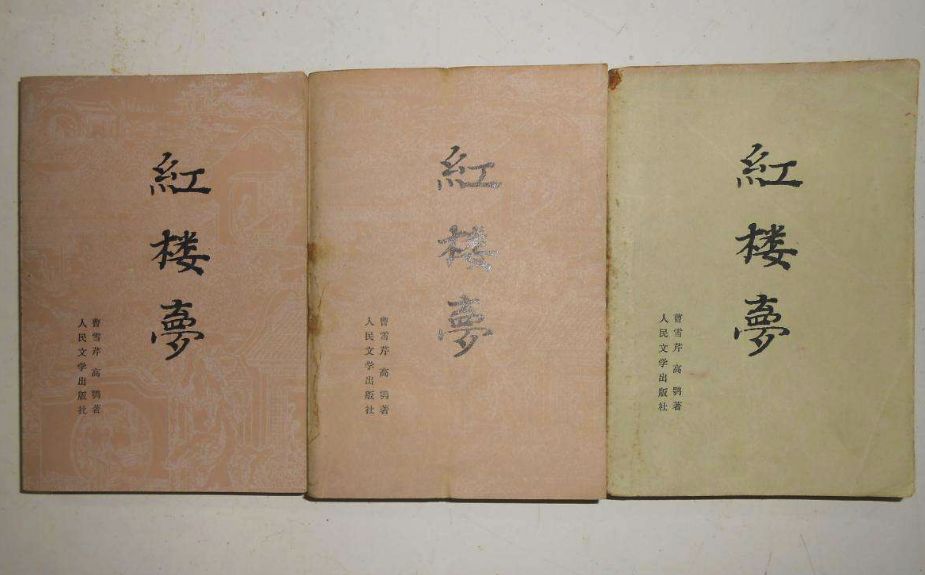 紅楼夢
曹雪芹 高鹗著
人民文学出版社
紅楼夢
曹雪芹 高鹗著
人民文学出版社
紅楼夢
曹雪芹 高鹗著
人民文学出版社